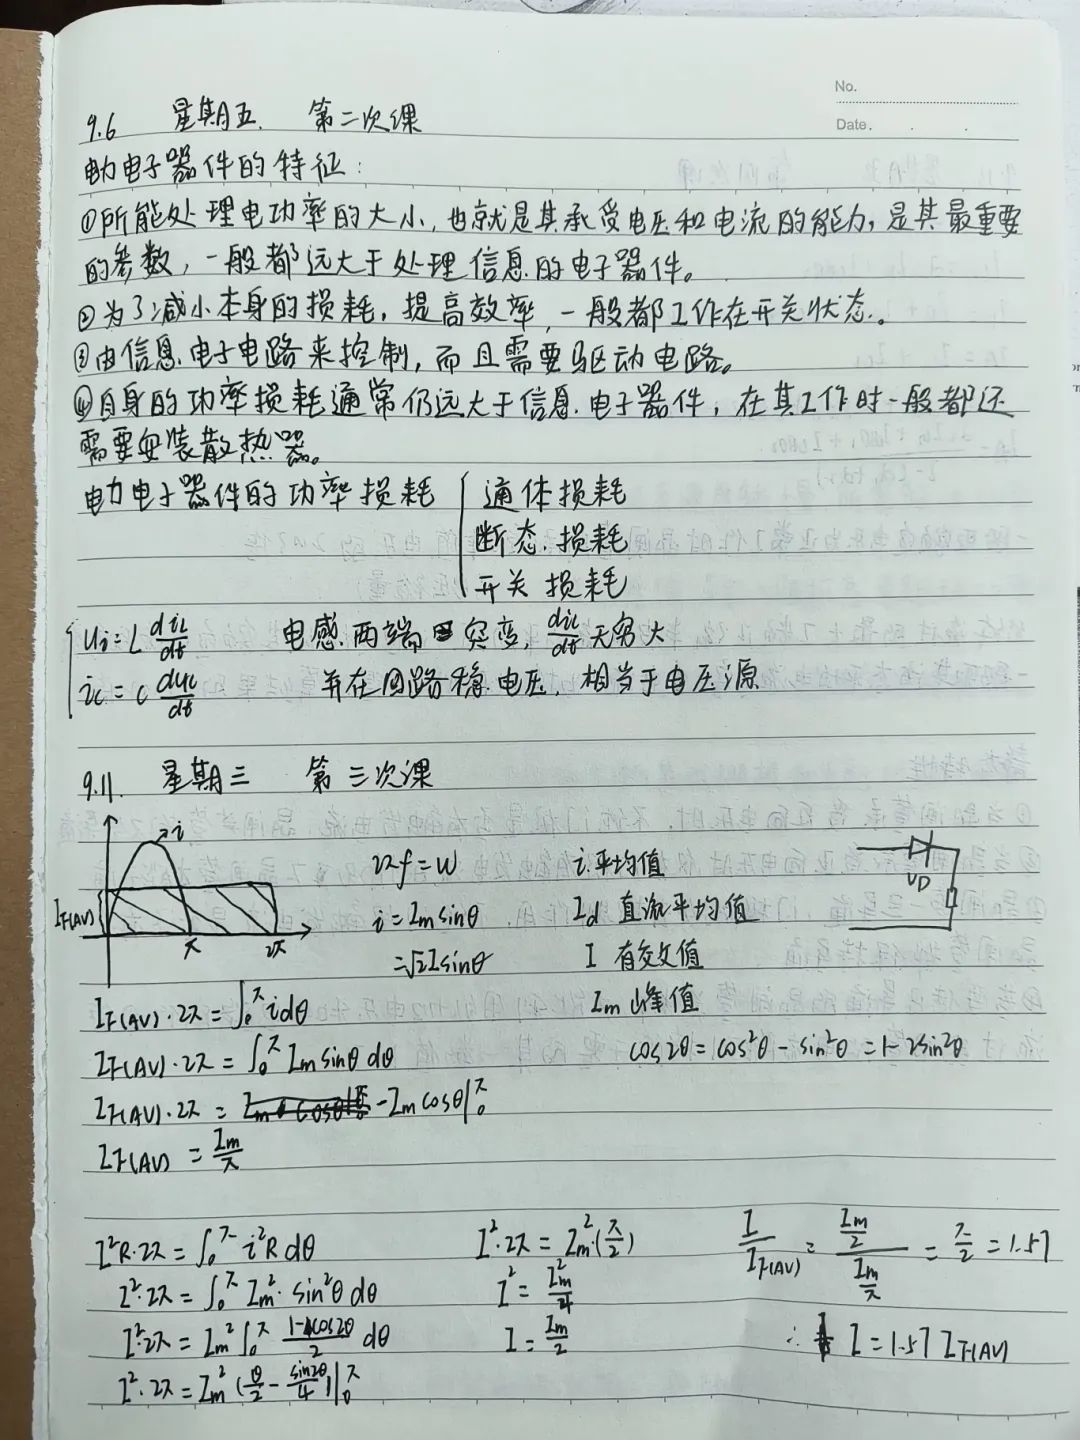 No.
Date.
9.6 星期五. 第二次课
电力电子器件的特征:
①所能处理电功率的大小,也就是其承受电压和电流的能力,是其最重要
的参数,一般都远大于处理信息的电子器件。
②为了减小本身的损耗,提高效率,一般都工作在开关状态。
③由信息电子电路来控制,而且需要驱动电路。
④自身的功率损耗通常仍远大于信息电子器件,在其工作时一般都还
需要安装散热器。
电力电子器件的功率损耗 { 通体损耗
断态损耗
开关损耗
Ui = L diL/dt 电感两端 突变, diL/dt 无穷大
ic = C duc/dt 并在回路稳电压,相当于电压源
9.11. 星期三 第三次课
i
IF(AV)
π 2π
2πf = W i 平均值
i = Im sinθ Id 直流平均值
= √2 I sinθ I 有效值
Im 峰值
VD
IF(AV)·2π = ∫₀^π i dθ
IF(AV)·2π = ∫₀^π Im sinθ dθ cos2θ = cos²θ - sin²θ = 1-2sin²θ
IF(AV)·2π = -Im cosθ|₀^π
IF(AV) = Im/π
I²R·2π = ∫₀^π i²R dθ I²·2π = Im²·(π/2) I/IF(AV) = (Im/2)/(Im/π) = π/2 = 1.57
I²·2π = ∫₀^π Im²·sin²θ dθ I² = Im²/4
I²·2π = Im² ∫₀^π (1-cos2θ)/2 dθ I = Im/2 ∴ I = 1.57 IF(AV)
I²·2π = Im² (θ/2 - sin2θ/4)|₀^π